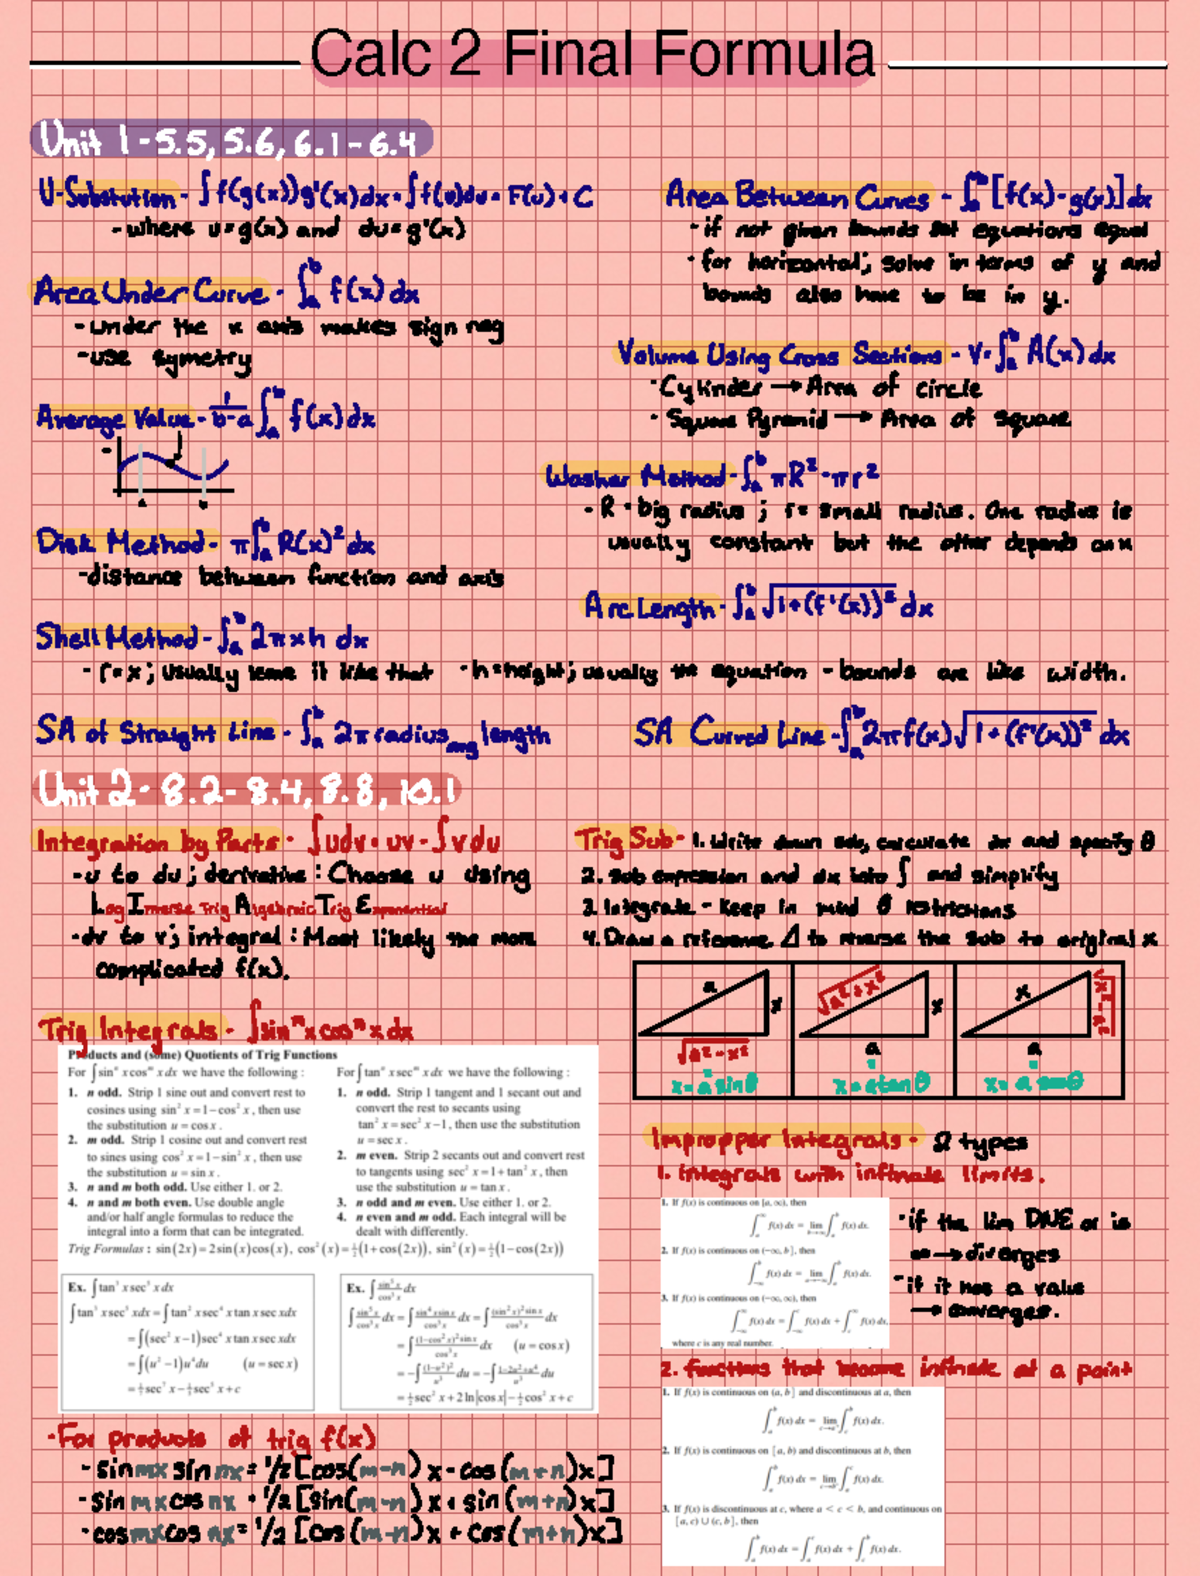 Calc 2 Final Formula
Unit 1 - 5.5, 5.6, 6.1 - 6.4
U-Substution - ∫f(g(x))g'(x)dx = ∫f(u)du = F(u) + C
- where u = g(x) and du = g'(x)
Area Under Curve - ∫ₐᵇ f(x) dx
- under the x axis makes sign neg
- use symetry
Average Value - 1/b-a ∫ₐᵇ f(x) dx
Disk Method - π∫ₐᵇ R(x)² dx
- distance between function and axis
Area Between Curves - ∫ₐᵇ [f(x) - g(x)] dx
- if not given bounds set equations equal
- for horizontal; solve in terms of y and
bounds also have to be in y.
Volume Using Cross Sections - V = ∫ₐᵇ A(x) dx
· Cylinder → Area of circle
· Square Pyramid → Area of square
Washer Method - ∫ₐᵇ πR² - πr²
- R = big radius ; r = small radius. One radius is
usually constant but the other depends on x
Arc Length - ∫ₐᵇ √1+(f'(x))² dx
Shell Method - ∫ₐᵇ 2πxh dx
- r = x ; usually leave it like that - h = height; usually the equation - bounds are like width.
SA of Straight Line - ∫ₐᵇ 2π radius avg length
SA Curved Line - ∫ₐᵇ 2πf(x)√1+(f'(x))² dx
Unit 2 - 8.2 - 8.4, 8.8, 10.1
Integration by Parts - ∫udv = uv - ∫vdu
- u to du ; derivative : Choose u using
Log Inverse Trig Algebraic Trig Exponential
- dv to v; integral : Most likely the more
complicated f(x).
Trig Integrals - ∫sinⁿx cosᵐx dx
Products and (some) Quotients of Trig Functions
For ∫sinⁿ x cosᵐ x dx we have the following :
1. n odd. Strip 1 sine out and convert rest to
cosines using sin² x = 1 - cos² x, then use
the substitution u = cos x.
2. m odd. Strip 1 cosine out and convert rest
to sines using cos² x = 1 - sin² x, then use
the substitution u = sin x.
3. n and m both odd. Use either 1. or 2.
4. n and m both even. Use double angle
and/or half angle formulas to reduce the
integral into a form that can be integrated.
For ∫tanⁿ x secᵐ x dx we have the following :
1. n odd. Strip 1 tangent and 1 secant out and
convert the rest to secants using
tan² x = sec² x - 1, then use the substitution
u = sec x.
2. m even. Strip 2 secants out and convert rest
to tangents using sec² x = 1 + tan² x, then
use the substitution u = tan x.
3. n odd and m even. Use either 1. or 2.
4. n even and m odd. Each integral will be
dealt with differently.
Trig Formulas : sin(2x) = 2sin(x)cos(x), cos²(x) = ½(1+cos(2x)), sin²(x) = ½(1-cos(2x))
Ex. ∫tan³ x sec⁵ x dx
∫tan³ x sec⁵ x dx = ∫tan² x sec⁴ x tan x sec x dx
= ∫(sec² x - 1) sec⁴ x tan x sec x dx
= ∫(u² - 1)u⁴ du (u = sec x)
= 1/7 sec⁷ x - 1/5 sec⁵ x + c
Ex. ∫ sin⁵ x / cos³ x dx
∫ sin⁵ x / cos³ x dx = ∫ sin⁴ x sin x / cos³ x dx = ∫ (sin² x)² sin x / cos³ x dx
= ∫ (1-cos² x)² sin x / cos³ x dx (u = cos x)
= -∫ (1-u²)² / u³ du = -∫ 1-2u²+u⁴ / u³ du
= ½ sec² x + 2 ln|cos x| - ½ cos² x + c
- For products of trig f(x)
- sin mx sin nx = 1/2 [cos(m-n)x - cos(m+n)x]
- sin mx cos nx = 1/2 [sin(m-n)x + sin(m+n)x]
- cos mx cos nx = 1/2 [cos(m-n)x + cos(m+n)x]
Trig Sub - 1. Write down sub, calculate dx and specify θ
2. Sub expression and dx into ∫ and simplify
3. Integrate - Keep in mind θ restrictions
4. Draw a reference Δ to reverse the sub to original x
a x √a²-x²
x = a sinθ
√a²+x² x a
x = a tanθ
x √x²-a² a
x = a secθ
Impropper Integrals - 2 types
1. integrals with infinate limits.
1. If f(x) is continuous on [a, ∞), then
∫ₐ^∞ f(x) dx = lim b→∞ ∫ₐᵇ f(x) dx.
2. If f(x) is continuous on (-∞, b], then
∫₋∞ᵇ f(x) dx = lim a→-∞ ∫ₐᵇ f(x) dx.
3. If f(x) is continuous on (-∞, ∞), then
∫₋∞^∞ f(x) dx = ∫₋∞ᶜ f(x) dx + ∫ᶜ^∞ f(x) dx,
where c is any real number.
· if the lim DNE or is
∞ → diverges
- if it has a value
→ converges.
2. functions that become infinate at a point
1. If f(x) is continuous on (a, b] and discontinuous at a, then
∫ₐᵇ f(x) dx = lim c→a⁺ ∫ᶜᵇ f(x) dx.
2. If f(x) is continuous on [a, b) and discontinuous at b, then
∫ₐᵇ f(x) dx = lim c→b⁻ ∫ₐᶜ f(x) dx.
3. If f(x) is discontinuous at c, where a < c < b, and continuous on
[a, c) ∪ (c, b], then
∫ₐᵇ f(x) dx = ∫ₐᶜ f(x) dx + ∫ᶜᵇ f(x) dx.